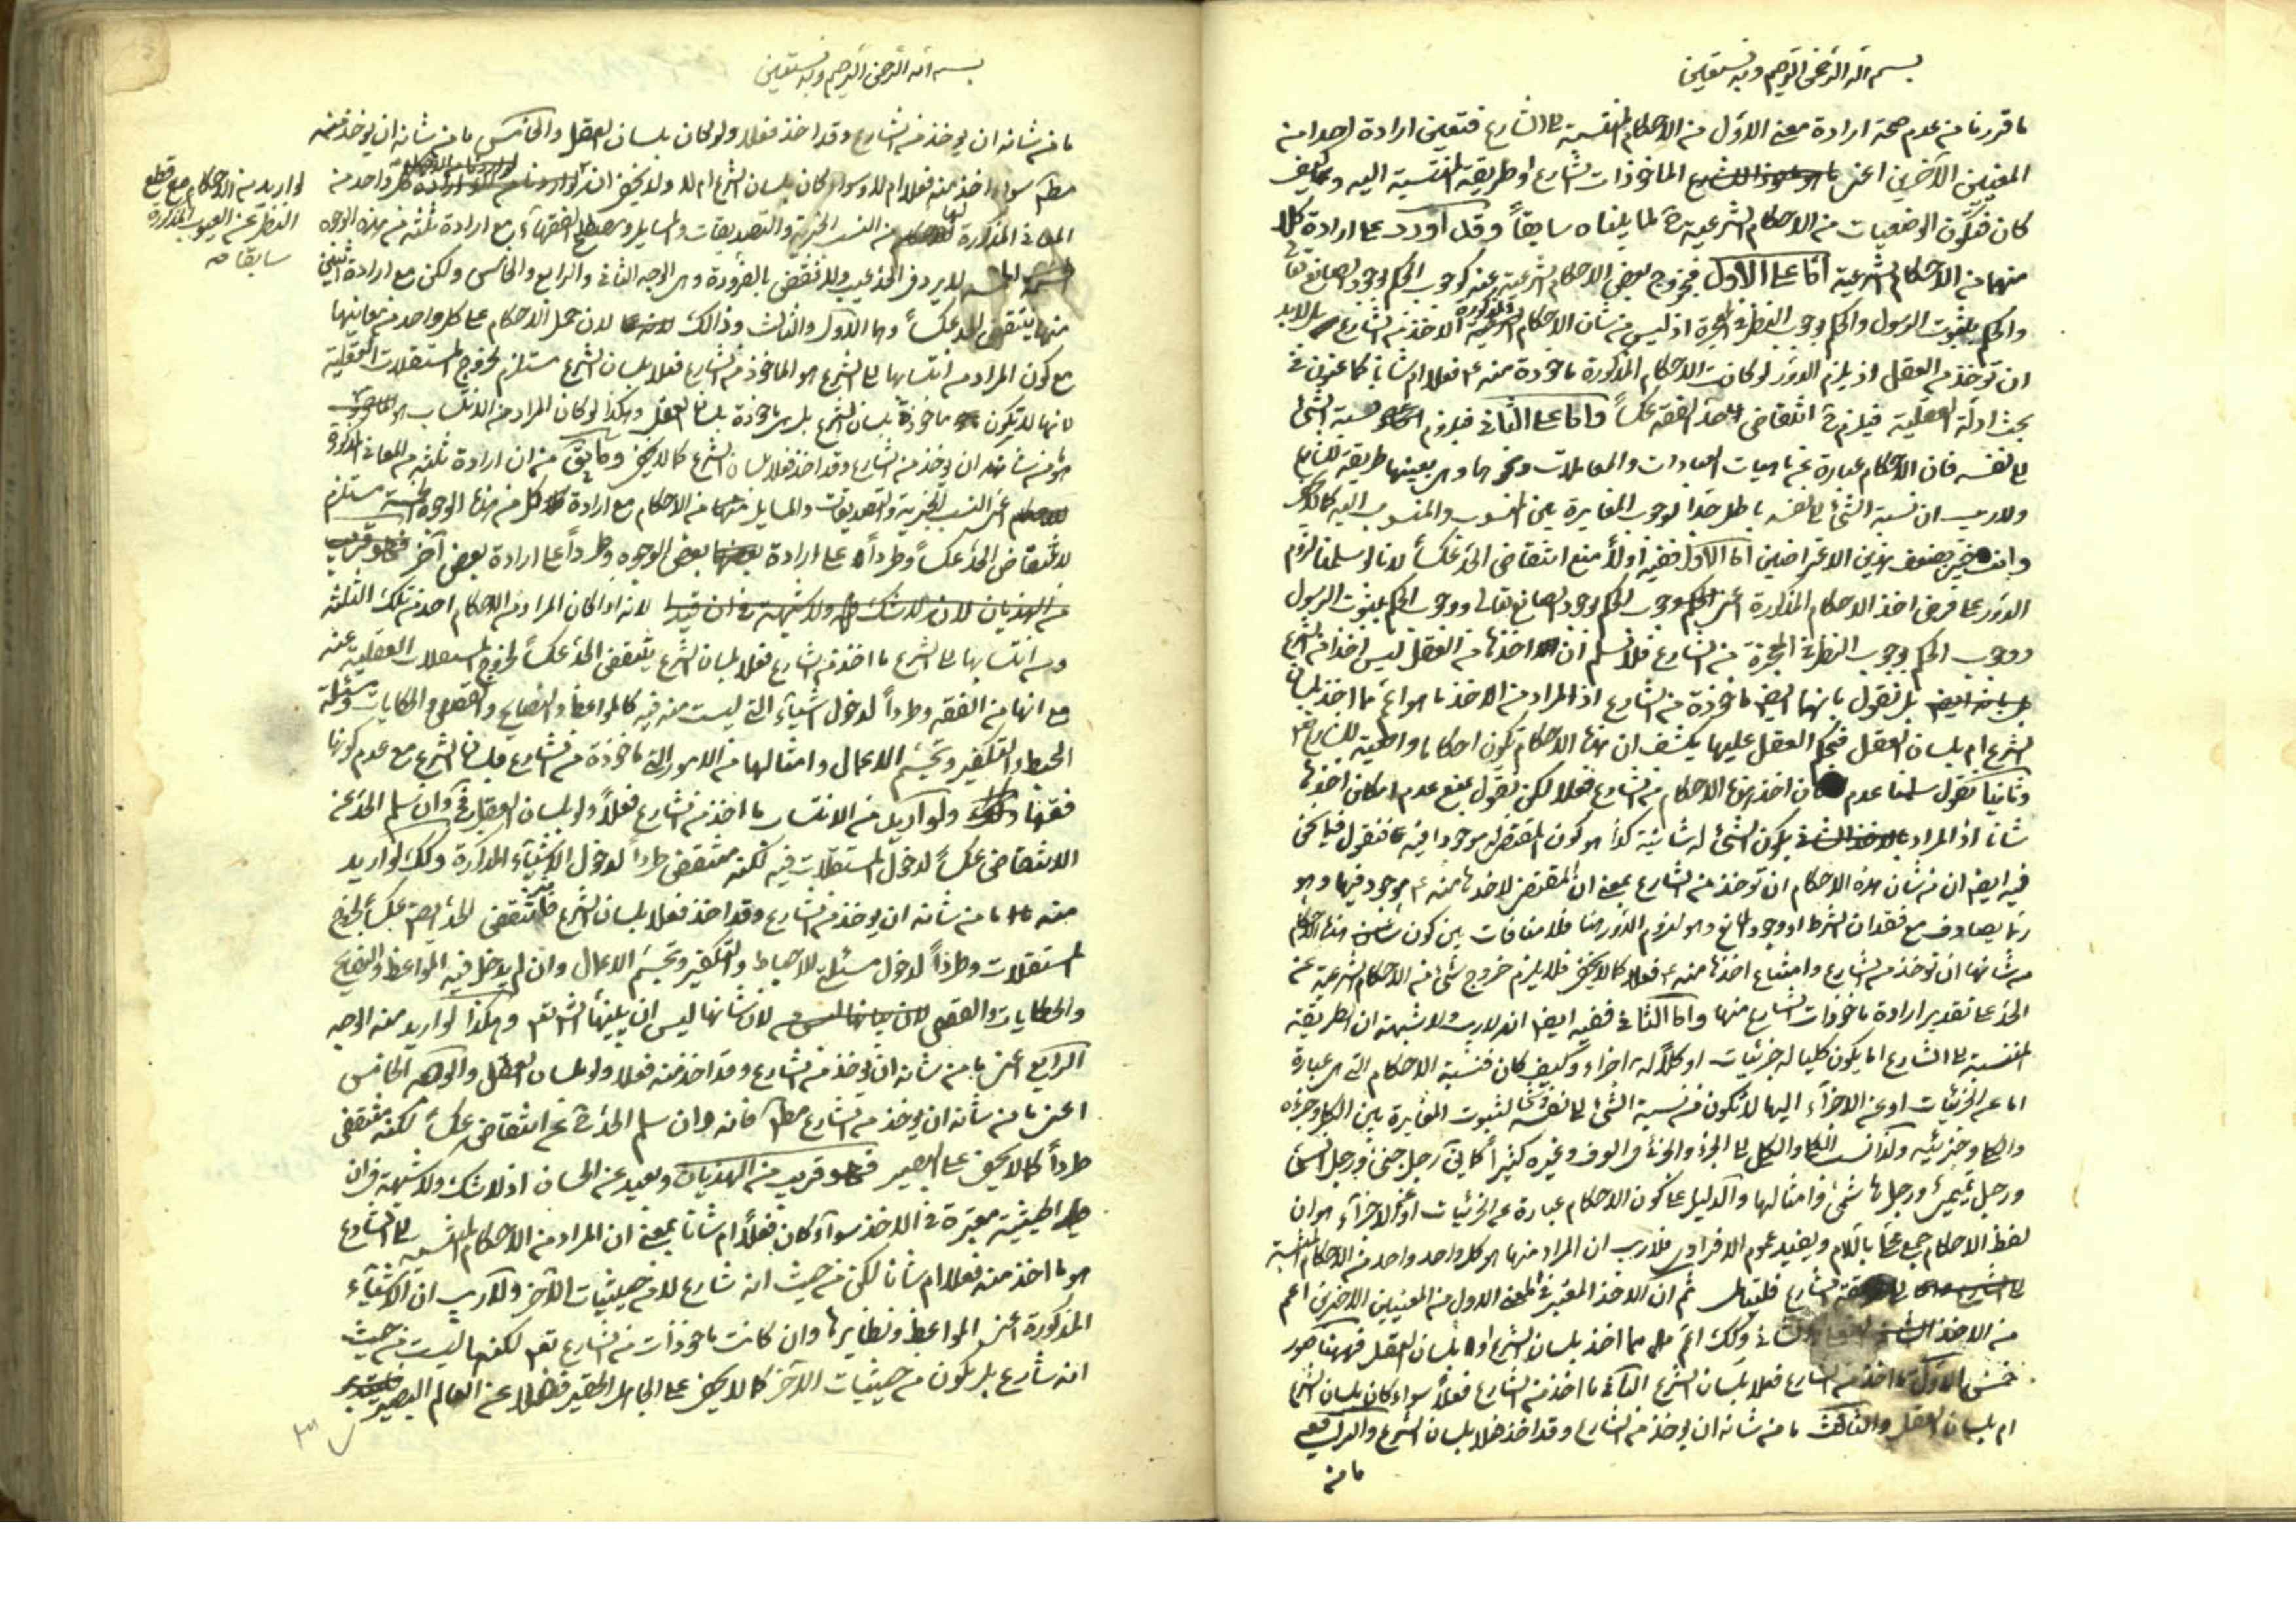 بسم الله الرحمن الرحيم وبه نستعين
ما قررنا من عدم صحة ارادة معنى الاول من الاحكام المنتسبة الى الشارع فتعين ارادة احد من
المعنيين الآخرين اعنى الماخوذات الشارع او طريقة المنتسبة اليه وكيف
كان فتكون الوضعيات من الاحكام الشرعية لما بيناه سابقاً وقد اورد على ارادة كل
منهما من الاحكام الشرعية اما على الاول فبخروج بعض الاحكام الشرعية عنه كوجوب الحكم بوجود الصانع تعالى
والحكم بثبوت الرسول والحكم بوجوب النظر فى المعجزة اذ ليس من شان الاحكام المذكورة الاخذ من الشارع بل لابد
ان توخذ من العقل اذ يلزم الدور لو كانت الاحكام المذكورة ماخوذة منه فعلا ام شانا كما عنون فى
بحث ادلة العقلية فيلزم انتقاض الحد الفقه عكساً واما على الثانى فيلزم نسبة الشئ
الى نفسه فان الاحكام عبارة عن ماهيات العبادات والمعاملات ونحوها وهى بعينها طريقة للشارع
ولا ريب ان نسبة الشئ الى نفسه باطل جدا لوجوب المغايرة بين المنسوب والمنسوب اليه كما لا يخفى
وانت خبير بضعف هذين الاعتراضين اما الاول ففيه اولاً منع انتقاض الحد عكساً لانا لو سلمنا لزوم
الدور على فرض اخذ الاحكام المذكورة اعنى وجوب الحكم بوجود الصانع تعالى ووجوب الحكم بثبوت الرسول
ووجوب الحكم بوجوب النظر فى المعجزة من الشارع فلا نسلم ان اخذها من العقل ليس اخذا من الشرع
بل نقول بانها ايضا ماخوذة من الشارع اذ المراد من الاخذ ما هو اعم مما اخذ بلسان
الشرع ام بلسان العقل فحكم العقل عليها يكشف ان هذه الاحكام تكون احكاما واقعية للشارع
وثانيا نقول سلمنا عدم امكان اخذ هذه الاحكام من الشارع فعلا لكن نقول بمنع عدم امكان اخذها
شانا اذ المراد بكون الشئ له شانية كذا هو كون المقتضى له موجودا فيه فنقول فيما نحن
فيه ايضا ان من شان هذه الاحكام ان توخذ من الشارع بمعنى ان المقتضى لاخذها منه موجود فيها وهو
ربما يصادف مع فقدان الشرط او وجود المانع وهو لزوم الدور هنا فلا منافات بين كون هذه الاحكام
من شانها ان توخذ من الشارع وامتناع اخذها منه فعلا كما لا يخفى فلا يلزم خروج شئ من الاحكام الشرعية عن
الحد على تقدير ارادة ماخوذات الشارع منها واما الثانى ففيه ايضا انه لا ريب ولا شبهة ان الطريقة
المنتسبة الى الشارع اما يكون كليا له جزئيات او كلاً له اجزاء وكيف كان فنسبة الاحكام التى هى عبارة
اما عن الجزئيات او عن الاجزاء اليها لا تكون من نسبة الشئ الى نفسه لثبوت المغايرة بين الكل وجزءه
والكلى وجزئيه ولذا نسب الكلى والكل الى الجزء والجزئى فى العرف وغيره كثيراً كما يق رجل جنى ورجل انسى
ورجل تميمى ورجل هاشمى وامثالها والدليل على كون الاحكام عبارة عن الجزئيات او عن الاجزاء هو ان
لفظ الاحكام جمع محلى باللام ويفيد عموم الافرادى فلا ريب ان المراد منها هو كل واحد واحد من الاحكام المنتسبة
الشارع فليتامل ثم ان الاخذ المعتبر فى المعنى الاول من المعنيين الاخيرين اعم
من الاخذ وكذلك اعم مما اخذ بلسان الشرع او بلسان العقل فههنا صور
خمس الاول ما اخذ من الشارع فعلا بلسان الشرع الثانى ما اخذ من الشارع فعلا سواء كان بلسان الشرع
ام بلسان العقل والثالث ما من شانه ان يوخذ من الشارع وقد اخذ فعلا بلسان الشرع والرابع
ما من
بسم الله الرحمن الرحيم وبه نستعين
ما من شانه ان يوخذ من الشارع وقد اخذ فعلا ولو كان بلسان العقل والخامس ما من شانه ان يوخذ منه
مطم سواء اخذ منه فعلا ام لا وسواء كان بلسان الشرع ام لا ولا يخفى ان كل واحد من
المعانى المذكورة لها من النسب الخبرية والتصديقات والمسايل ومصطلح الفقهاء مع ارادة ثلثة من هذه الوجوه
لا يرد فى الحد عيب ولا نقض بالضرورة وهى الوجه الثانى والرابع والخامس ولكن مع ارادة اثنين
منها ينتقض الحد عكساً وهما الاول والثالث وذالك لان حمل الاحكام على كل واحد من معانيها
مع كون المراد من انتسابها الى الشرع هو الماخوذ من الشارع فعلا بلسان الشرع مستلزم لخروج المستقلات العقلية
لانها لا تكون ماخوذة بلسان الشرع بل هى ماخوذة بلسان العقل وهكذا لو كان المراد من الانتساب هو
هو من شانه ان يوخذ من الشارع وقد اخذ فعلا بلسان الشرع كما لا يخفى وما يق من ان ارادة ثلثة من المعانى المذكورة
اعنى النسب الخبرية والتصديقات والمسايل من الاحكام مع ارادة كل من هذه الوجوه الخمسة مستلزم
لانتقاض الحد عكساً وطرداً على ارادة بعض الوجوه وطرداً على ارادة بعض آخر
من الهذيان لانه اذا كان المراد من الاحكام احد من تلك الثلثة
ومن انتسابها الى الشرع ما اخذ من الشارع فعلا بلسان الشرع ينتقض الحد عكساً لخروج المستقلات العقلية عنه
مع انها من الفقه وطرداً لدخول اشياء التى ليست منه فيه كالمواعظ والنصايح والقصص والحكايات ومسئلة
الحبط والتكفير وتجسم الاعمال وامثالها من الامور التى ماخوذة من الشارع بلسان الشرع مع عدم كونها
فقها ولو اريد من الانتساب ما اخذ من الشارع فعلاً ولو بلسان العقل وان سلم الحد عن
الانتقاض عكساً لدخول المستقلات فيه لكنه منتقض طرداً لدخول الاشياء المذكورة وكذلك لو اريد
منه ما من شانه ان يوخذ من الشارع وقد اخذ فعلا بلسان الشرع ينتقض الحد ايضا عكساً لخروج
المستقلات وطرداً لدخول مسئلة الاحباط والتكفير وتجسم الاعمال وان لم يدخل فيه المواعظ والنصايح
والحكايات والقصص لان شانها ليس ان يبينها الشارع وهكذا لو اريد منه الوجه
الرابع اعنى ما من شانه ان يوخذ من الشارع وقد اخذ منه فعلا ولو بلسان العقل والوجه الخامس
اعنى ما من شانه ان يوخذ من الشارع مطم فانه وان سلم الحد عن انتقاض عكساً لكنه منتقض
طرداً كما لا يخفى على البصير قريب من الهذيان وبعيد عن الحسان اذ لا شك ولا شبهة فى ان
حيثية معتبرة فى الاخذ سواء كان فعلاً ام شانا بمعنى ان المراد من الاحكام المنتسبة الى الشارع
هو ما اخذ منه فعلا ام شانا لكن من حيث انه شارع لا من حيثيات الآخر ولا ريب ان الاشياء
المذكورة اعنى المواعظ ونظايرها وان كانت ماخوذات من الشارع لكنها ليست من حيث
انه شارع بل يكون من حيثيات الآخر كما لا يخفى على الجاهل الحقير فضلا عن العالم البصير
لو اريد من الاحكام مع قطع
النظر عن العيوب المذكورة
سابقا منه